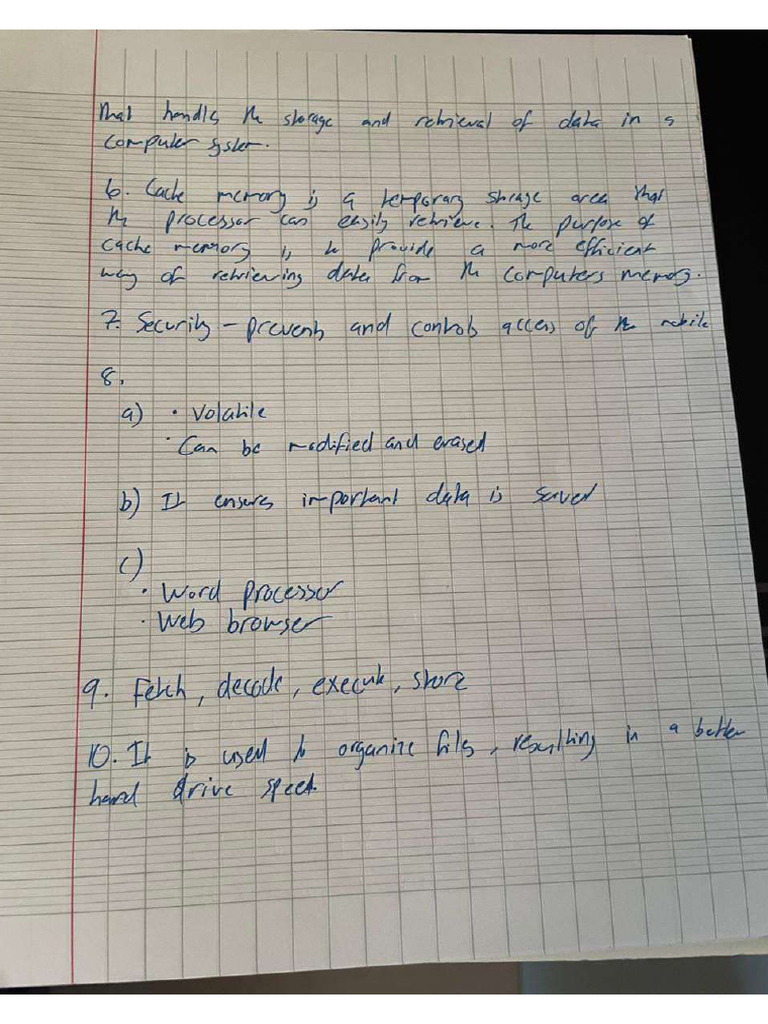 that handls the storage and retrieval of data in a
computer system.
6. Cache memory is a temporary storage area that
the processor can easily retrieve. The purpose of
cache memory is to provide a more efficient
way of retrieving data from the computers memory.
7. Security - prevents and controls access of the mobile
8.
a) • Volatile
• Can be modified and erased
b) It ensures important data is saved
c)
• Word processor
• Web browser
9. Fetch, decode, execute, store
10. It is used to organize files, resulting in a better
hard drive speed.